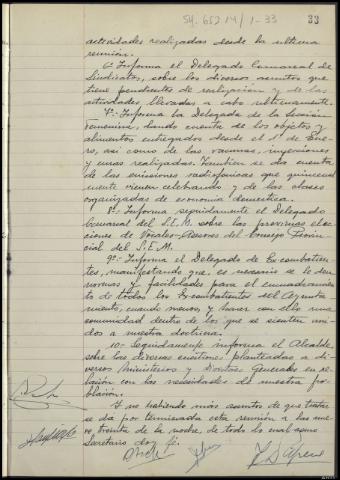 SH-652 14/1-33
33
actividades realizadas desde la ultima
reunión.
6º Informa el Delegado Comarcal de
Sindicatos, sobre los diversos asuntos que
tiene pendientes de realización y de las
actividades llevadas a cabo ultimamente.
7º- Informa la Delegada de la Sección
Femenina, dando cuenta de los objetos y
alimentos entregados desde el 1º de Ene-
ro, asi como de las vacunas, inyecciones
y curas realizadas. Tambien se da cuenta
de las emisiones radiofonicas que quincenal
mente vienen celebrando y de las clases
organizadas de economia domestica.
8º- Informa seguidamente el Delegado
Comarcal del S.E.M. sobre las proximas elec
ciones de Vocales-Asesores del Consejo Provin
cial del S.E.M.
9º- Informa el Delegado de Ex-combatien
tes, manifestando que, es necesario se le den
normas y facilidades para el encuadramien
to de todos los Ex-combatientes del Ayunta
miento, cuando menos y hacer con ello una
comunidad dentro de los que se sienten uni
dos a nuestra doctrina.
10.- Seguidamente informa el Alcalde,
sobre las diversas cuestiones planteadas a di-
versos Ministerios y Direcciones Generales en re-
lación con las necesidades de nuestra po-
blación.
Y no habiendo más asuntos de que tratar
se da por terminada esta reunión a las nue
ve, treinta de la noche, de todo lo cual como
Secretario doy fé.